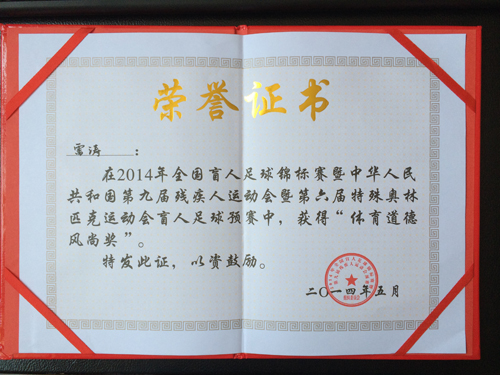 荣誉证书
雷涛：
在2014年全国盲人足球锦标赛暨中华人民
共和国第九届残疾人运动会暨第六届特殊奥林
匹克运动会盲人足球预赛中，获得“体育道德
风尚奖”。
特发此证，以资鼓励。
二〇一四年五月